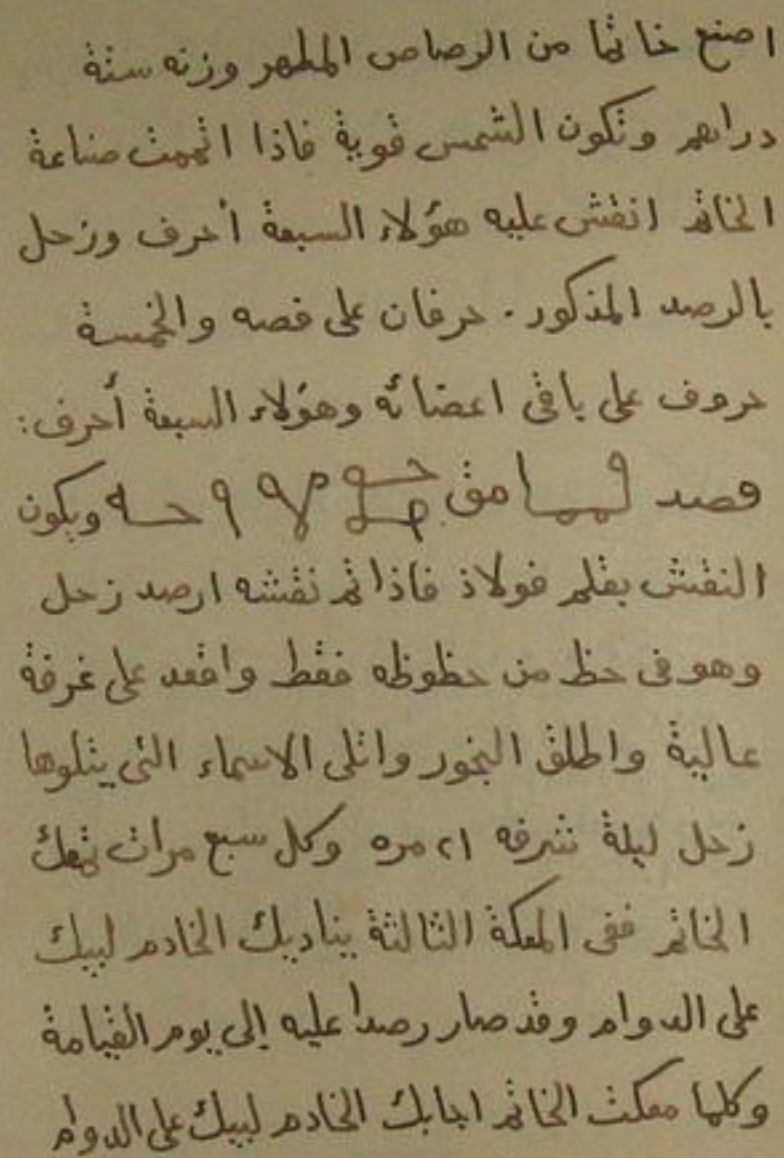 اصنع خاتما من الرصاص المطهر وزنه ستة
دراهم وتكون الشمس قوية فاذا اتممت صناعة
الخاتم انقش عليه هؤلاء السبعة أحرف وزحل
بالرصد المذكور. حرفان على فصه والخمسة
حروف على باقى اعضائه وهؤلاء السبعة أحرف:
ويكون
النقش بقلم فولاذ فاذا تم نقشه ارصد زحل
وهو فى حظ من حظوظه فقط واقعد على غرفة
عالية واطلق البخور واتلى الاسماء التى يتلوها
زحل ليلة شرفه ٢١ مره وكل سبع مرات تمعك
الخاتم ففى المعكة الثالثة يناديك الخادم لبيك
على الدوام وقد صار رصدا عليه إلى يوم القيامة
وكلما معكت الخاتم اجابك الخادم لبيك على الدوام